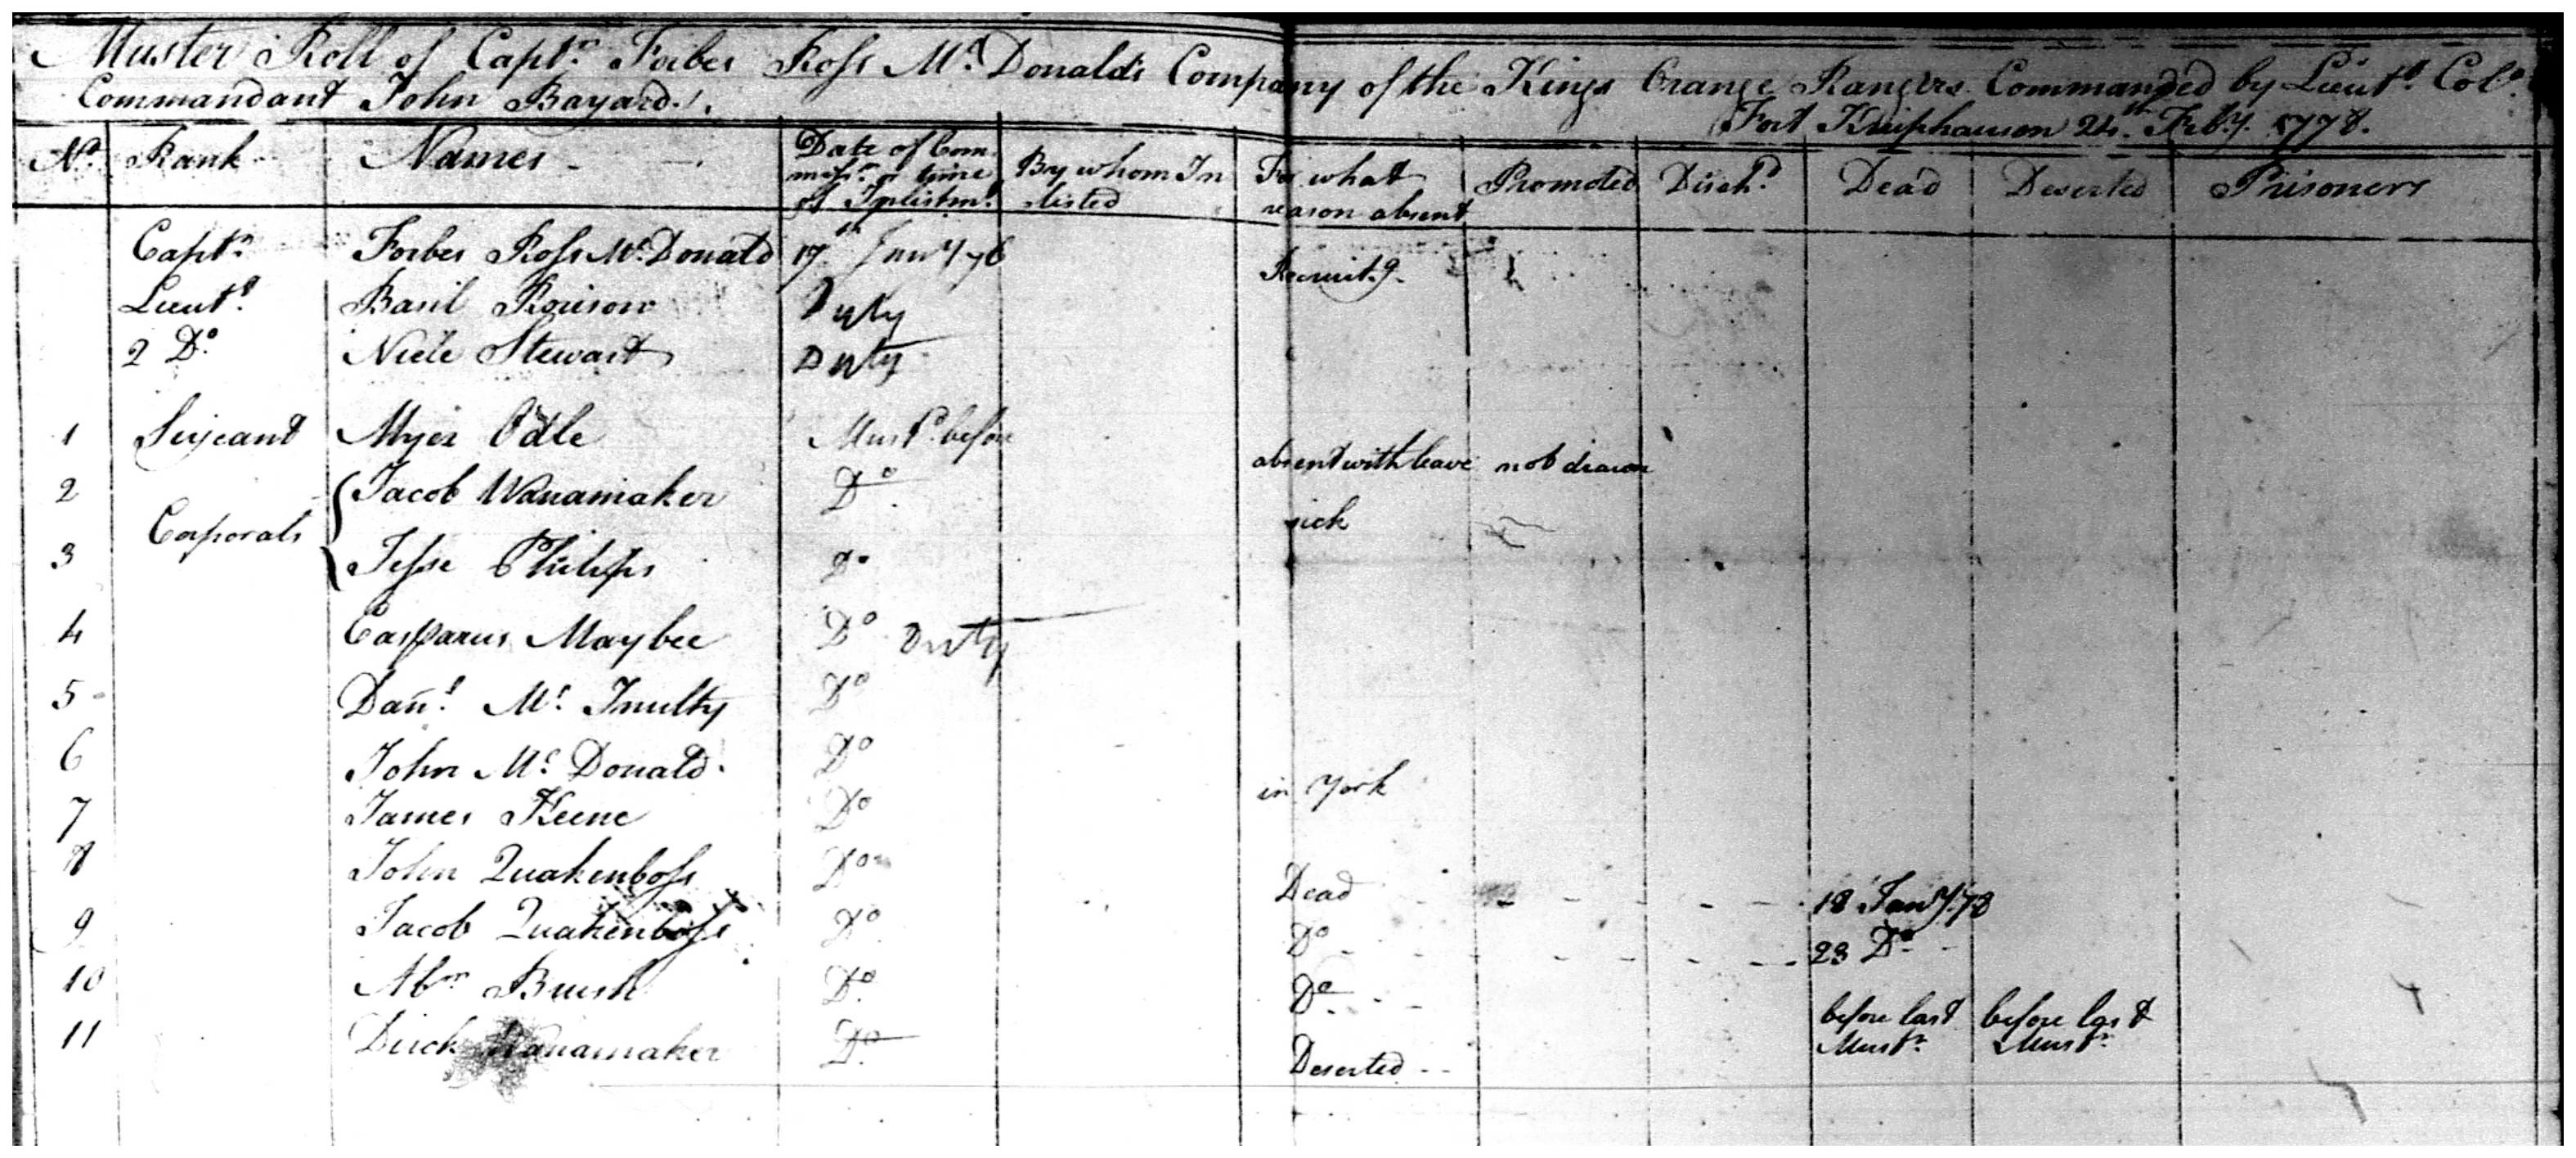 Muster Roll of Captn. Forbes Ross Mc.Donald's Company of the Kings Orange Rangers Commanded by Lieutt. Colo.
Commandant John Bayard.
Fort Kniphausen 24th. Feby. 1778.
No. Rank Names Date of Com missn. or time of Inlistmt. By whom In listed For what reason absent Promoted Dischd. Dead Deserted Prisoners
Captn. Forbes Ross Mc.Donald 17th Jany 76 Recruitg.
Lieutt. Basil Duty
2 Do. Stewart Duty
1 Serjeant Myer Odle Mustd. before
2 Corporals Jacob Wanamaker Do. absent with leave not drawn
3 Jesse Philips Do sick
4 Casparus Maybee Do Duty
5 Danl. Mc. Inulty Do
6 John Mc. Donald Do
7 James Keene Do in York
8 John Quakenboss Do Dead 18 Jany. 78
9 Jacob Quakenboss Do Do 23 Do
10 Abm Brush Do Do before last Mustr.
11 Dirck Wanamaker Do Deserted before last Mustr.